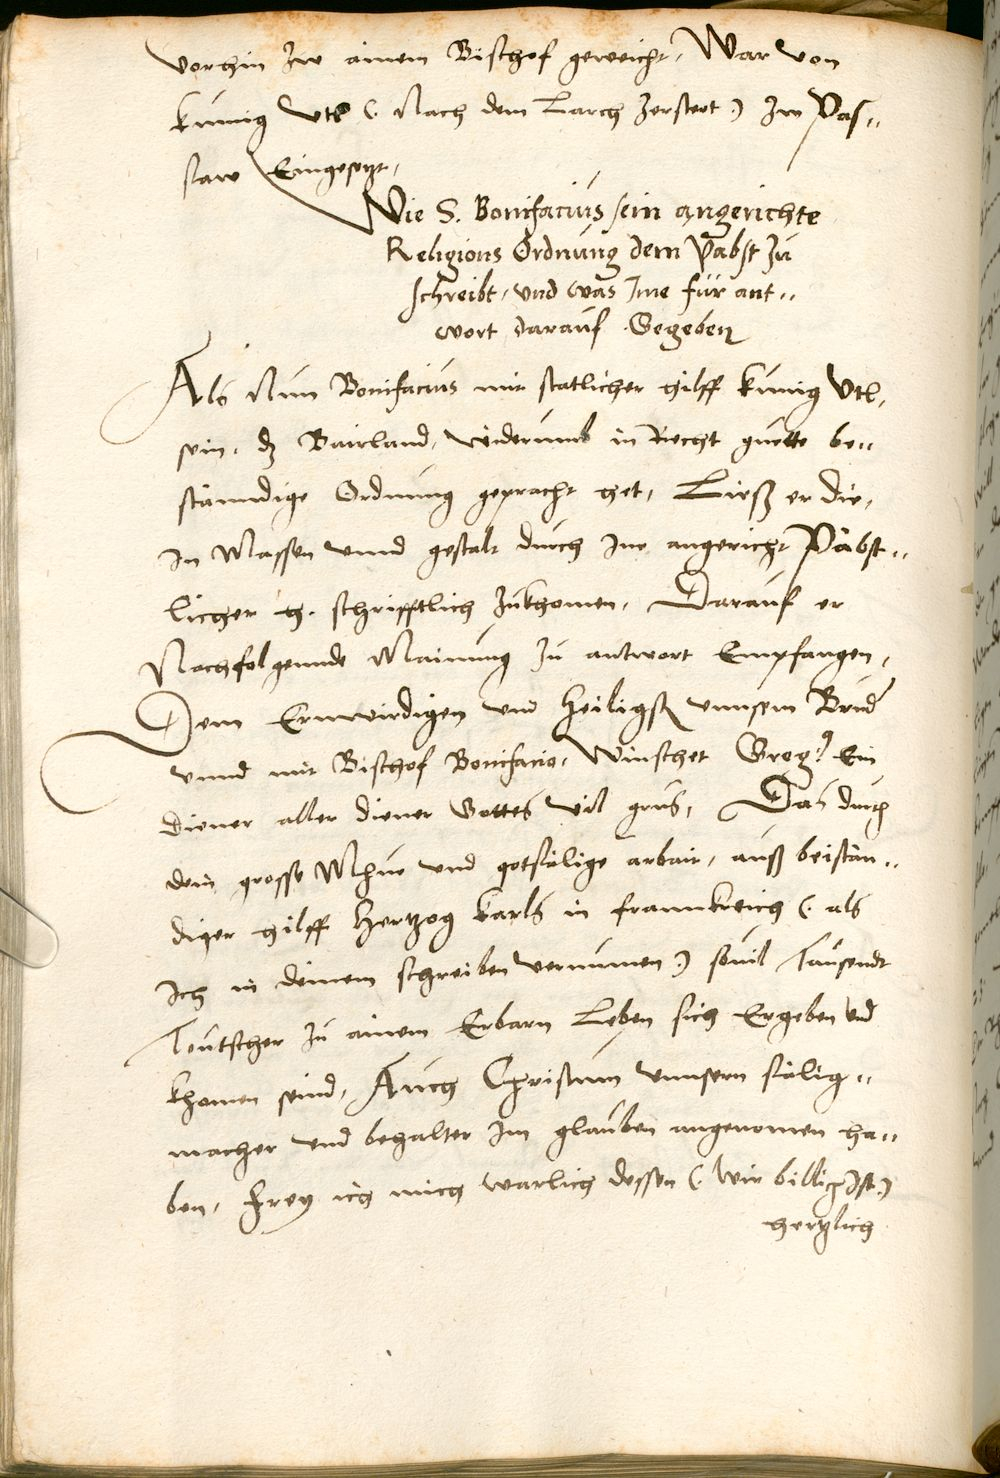 vorhin zw ainem Bischof geweicht, War von
künig Utl (. Nach dem Larch zerstert .) zw Pas„
saw Eingesetzt,
Wie S. Bonifacius sein angerichte
Religions Ordnung dem Pabst zu
schreibt, und was Ime für ant„
wort darauf Gegeben
Als Nun Bonifacius mit statlicher hilff künig Utl,
sein, dz Bairland, widerumb in Recht guette be„
stänndige Ordnung gepracht het, Ließ er die,
In Massen unnd gestalt durch Ine angericht Päbst„
licher h. schrifftlich zukhomen, Darauf er
Nachfolgennde Mainung zu antwort Empfangen,
Dem Ernwirdigen und heiligsten unnsern Brud
unnd mit Bischof Bonifacio, Winschet Greg: Ein
diener aller diener Gottes vil grus, Das durch
dein grosse Mhue und gotsälige arbait, auß beistän„
diger hilff Hertzog Karls in Frannkreich (. als
Ich in deinem schreiben vernumen .) sovil Tausendt
Teutscher zu ainem Erbarn Leben sich Ergeben und
khomen seind, Auch Christum unnsern sälig„
macher und behalter Im glauben angenomen ha„
ben, Frey ich mich warlich dessen (. Wie billich Ist .)
hertzlich